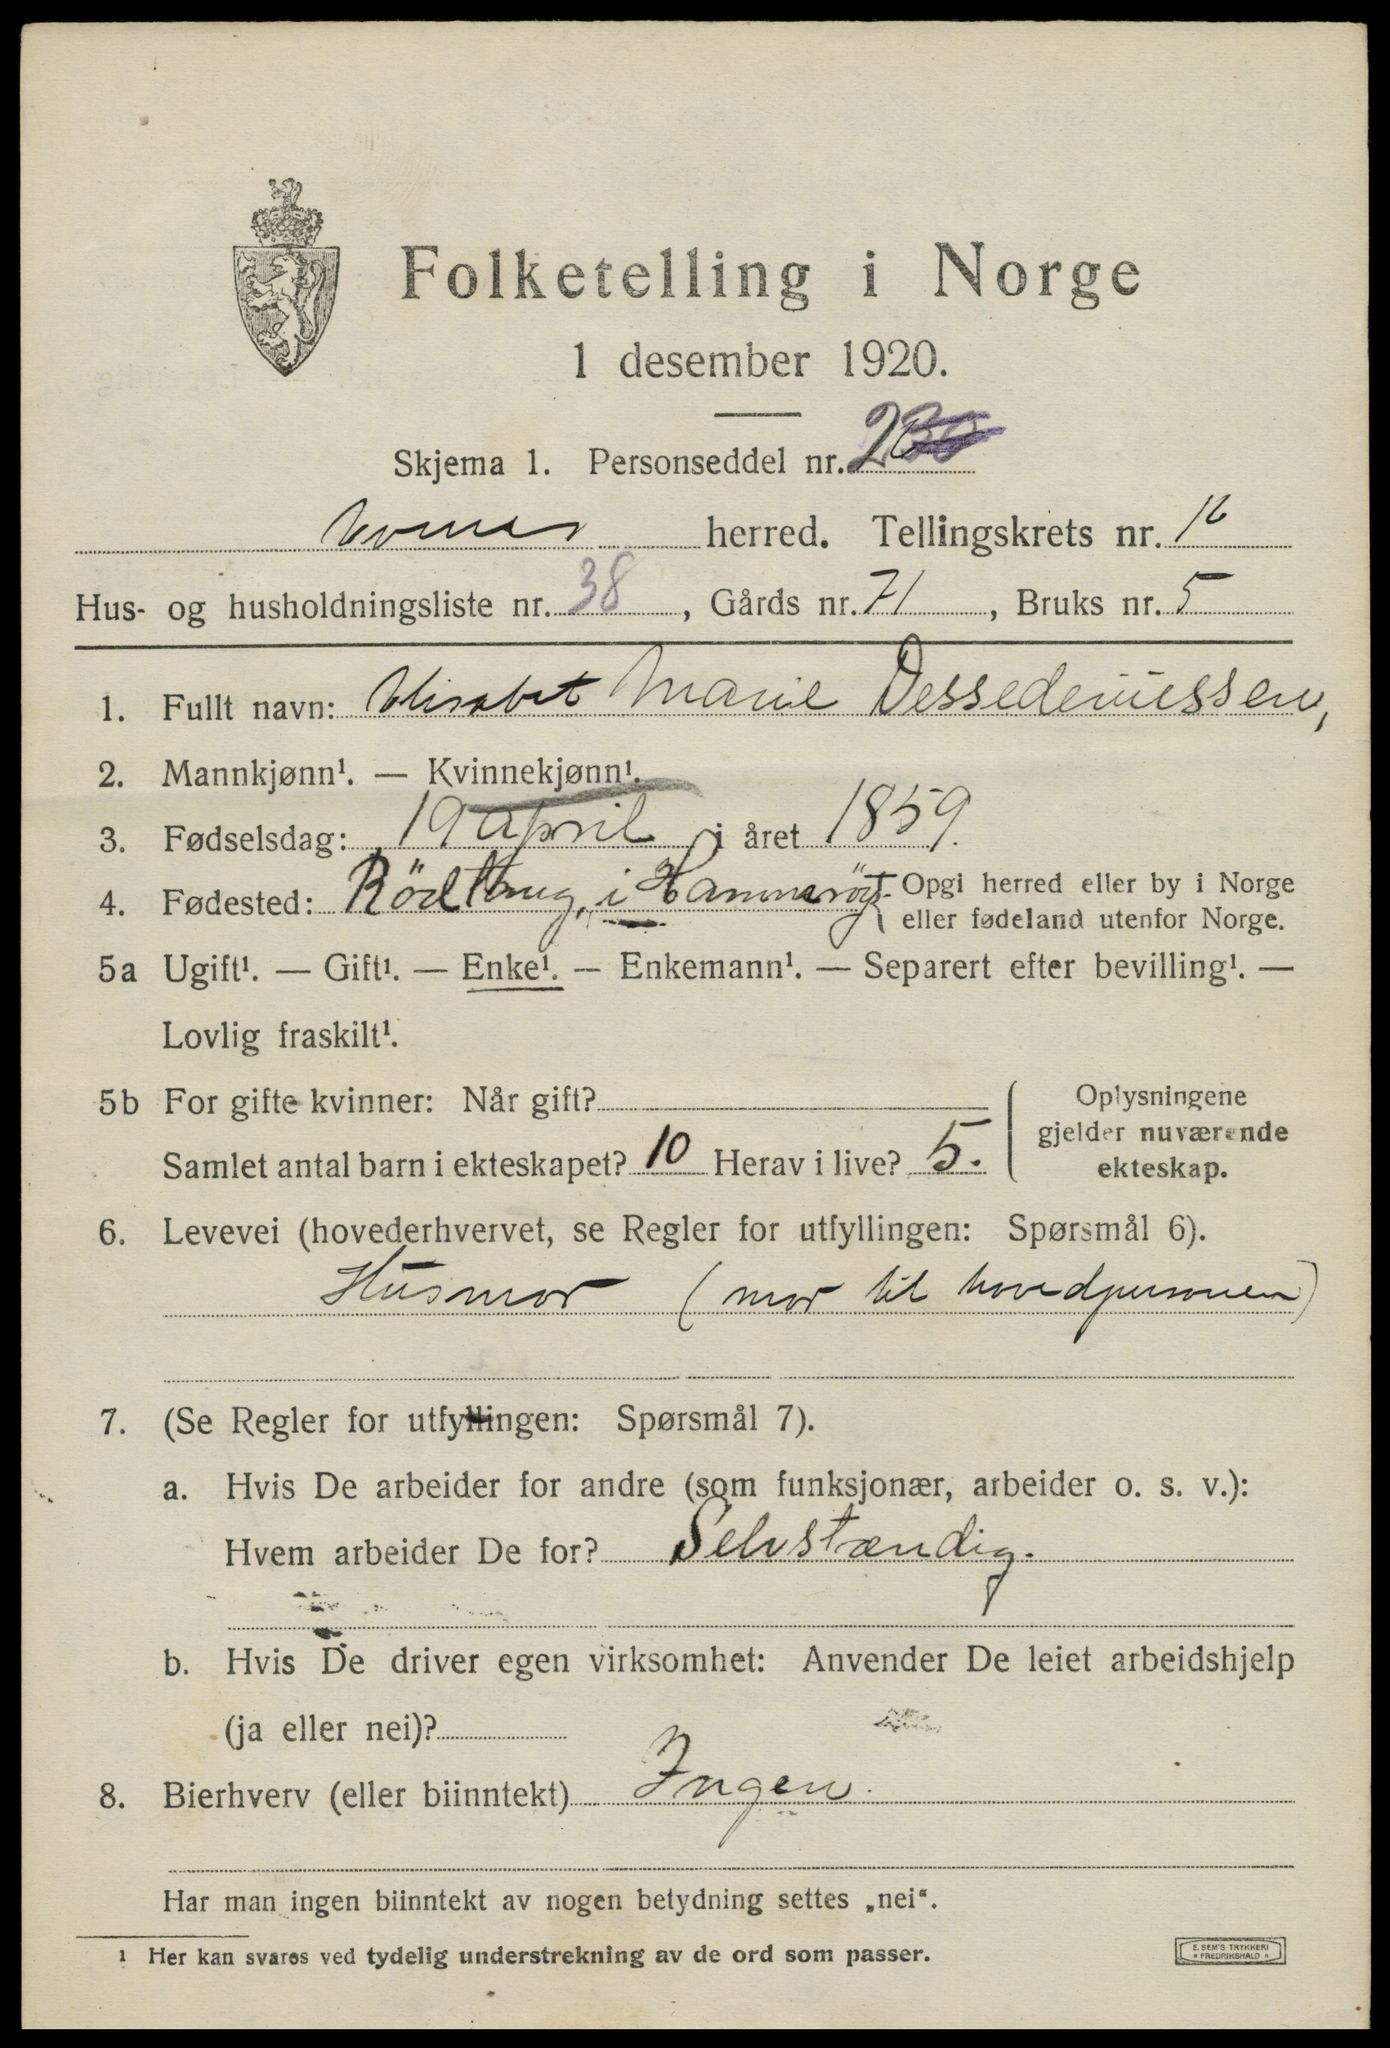 Folketelling i Norge
1 desember 1920.
Skjema 1. Personseddel nr. 2
herred. Tellingskrets nr. 16
Hus- og husholdningsliste nr. 38, Gårds nr. 71, Bruks nr. 5
1. Fullt navn: Elisabet Marie
2. Mannkjønn¹. — Kvinnekjønn¹.
3. Fødselsdag: 19 april i året 1859.
4. Fødested: i Opgi herred eller by i Norge
eller fødeland utenfor Norge.
5a Ugift¹. — Gift¹. — Enke¹. — Enkemann¹. — Separert efter bevilling¹. —
Lovlig fraskilt¹.
5b For gifte kvinner: Når gift?
Samlet antal barn i ekteskapet? 10 Herav i live? 5.
Oplysningene
gjelder nuværende
ekteskap.
6. Levevei (hovederhvervet, se Regler for utfyllingen: Spørsmål 6).
Husmor (mor til hovedpersonen)
7. (Se Regler for utfyllingen: Spørsmål 7).
a. Hvis De arbeider for andre (som funksjonær, arbeider o. s. v.):
Hvem arbeider De for? Selvstændig.
b. Hvis De driver egen virksomhet: Anvender De leiet arbeidshjelp
(ja eller nei)?
8. Bierhverv (eller biinntekt) Ingen.
Har man ingen biinntekt av nogen betydning settes „nei“.
¹ Her kan svares ved tydelig understrekning av de ord som passer.
E. SEM'S TRYKKERI
* FREDRIKSHALD *